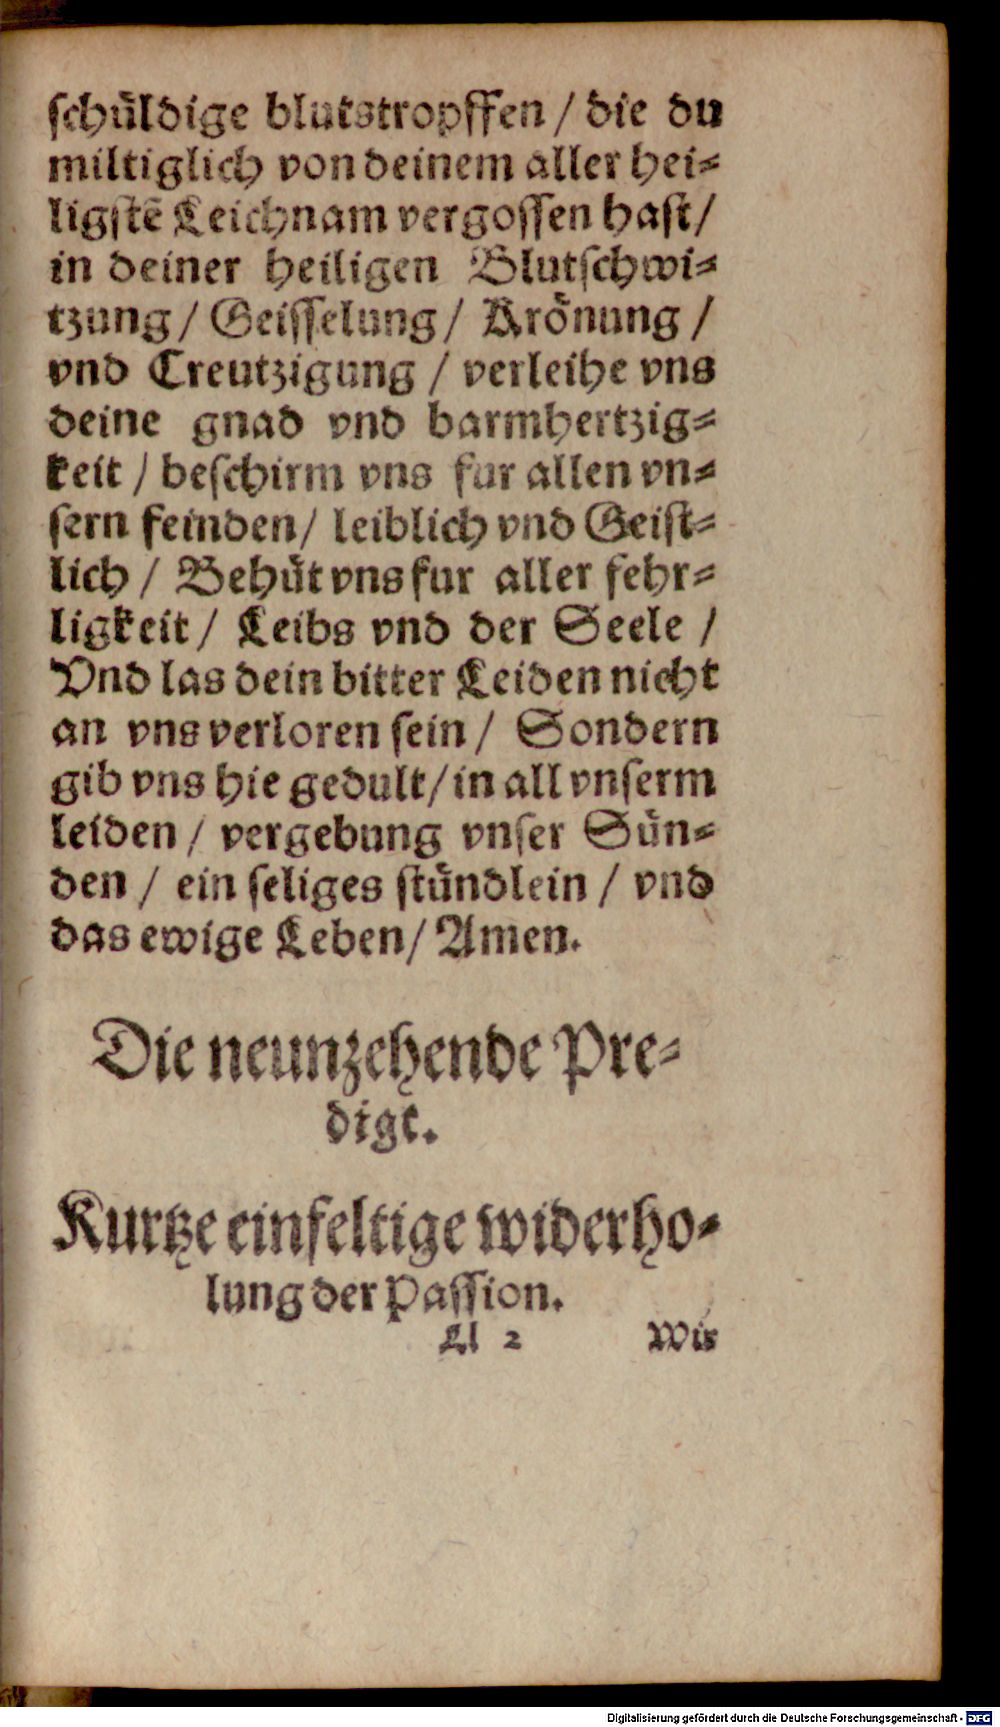 ſchuͤldige blutstropffen / die du
miltiglich von deinem aller hei⸗
ligſtẽ Leichnam vergoſſen haſt/
in deiner heiligen Blutſchwi⸗
tzung / Geiſſelung / Kroͤnung /
vnd Creutzigung / verleihe vns
deine gnad vnd barmhertzig⸗
keit / beſchirm vns fur allen vn⸗
ſern feinden / leiblich vnd Geiſt⸗
lich / Behuͤt vns fur aller fehr⸗
ligkeit / Leibs vnd der Seele /
Vnd las dein bitter Leiden nicht
an vns verloren ſein / Sondern
gib vns hie gedult / in all vnſerm
leiden / vergebung vnſer Suͤn⸗
den / ein ſeliges ſtuͤndlein / vnd
das ewige Leben / Amen.
Die neunzehende Pre⸗
digt.
Kurtze einfeltige widerho⸗
lung der Paſſion.
2 Wir
Digitalisierung gefördert durch die Deutsche Forschungsgemeinschaft - DFG